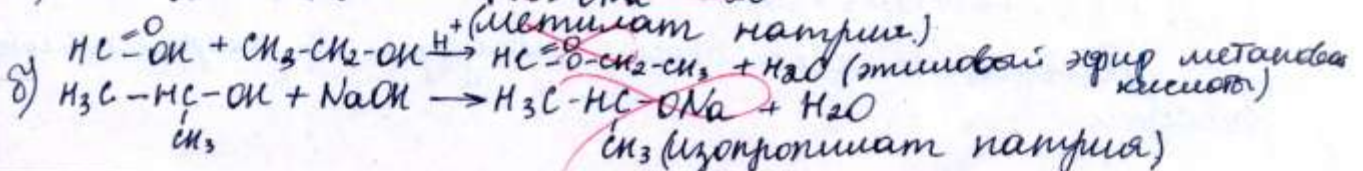 (метилат натрия)
HC=O-OH + CH3-CH2-OH H+→ HC=O-O-CH2-CH3 + H2O (этиловый эфир метановой кислоты)
б) H3C-HC-OH + NaOH → H3C-HC-ONa + H2O
CH3 CH3 (изопропилат натрия)